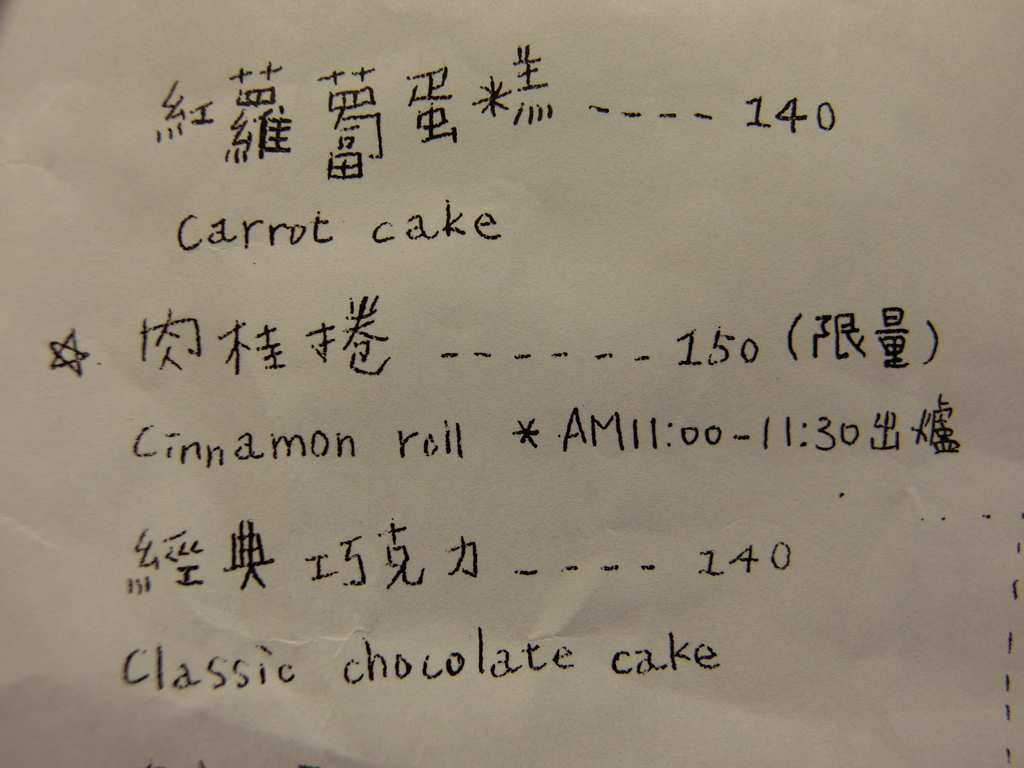 紅蘿蔔蛋糕 ---- 140
Carrot cake
☆ 肉桂捲 ------ 150 (限量)
Cinnamon roll * AM11:00-11:30出爐
經典巧克力 ---- 140
Classic chocolate cake